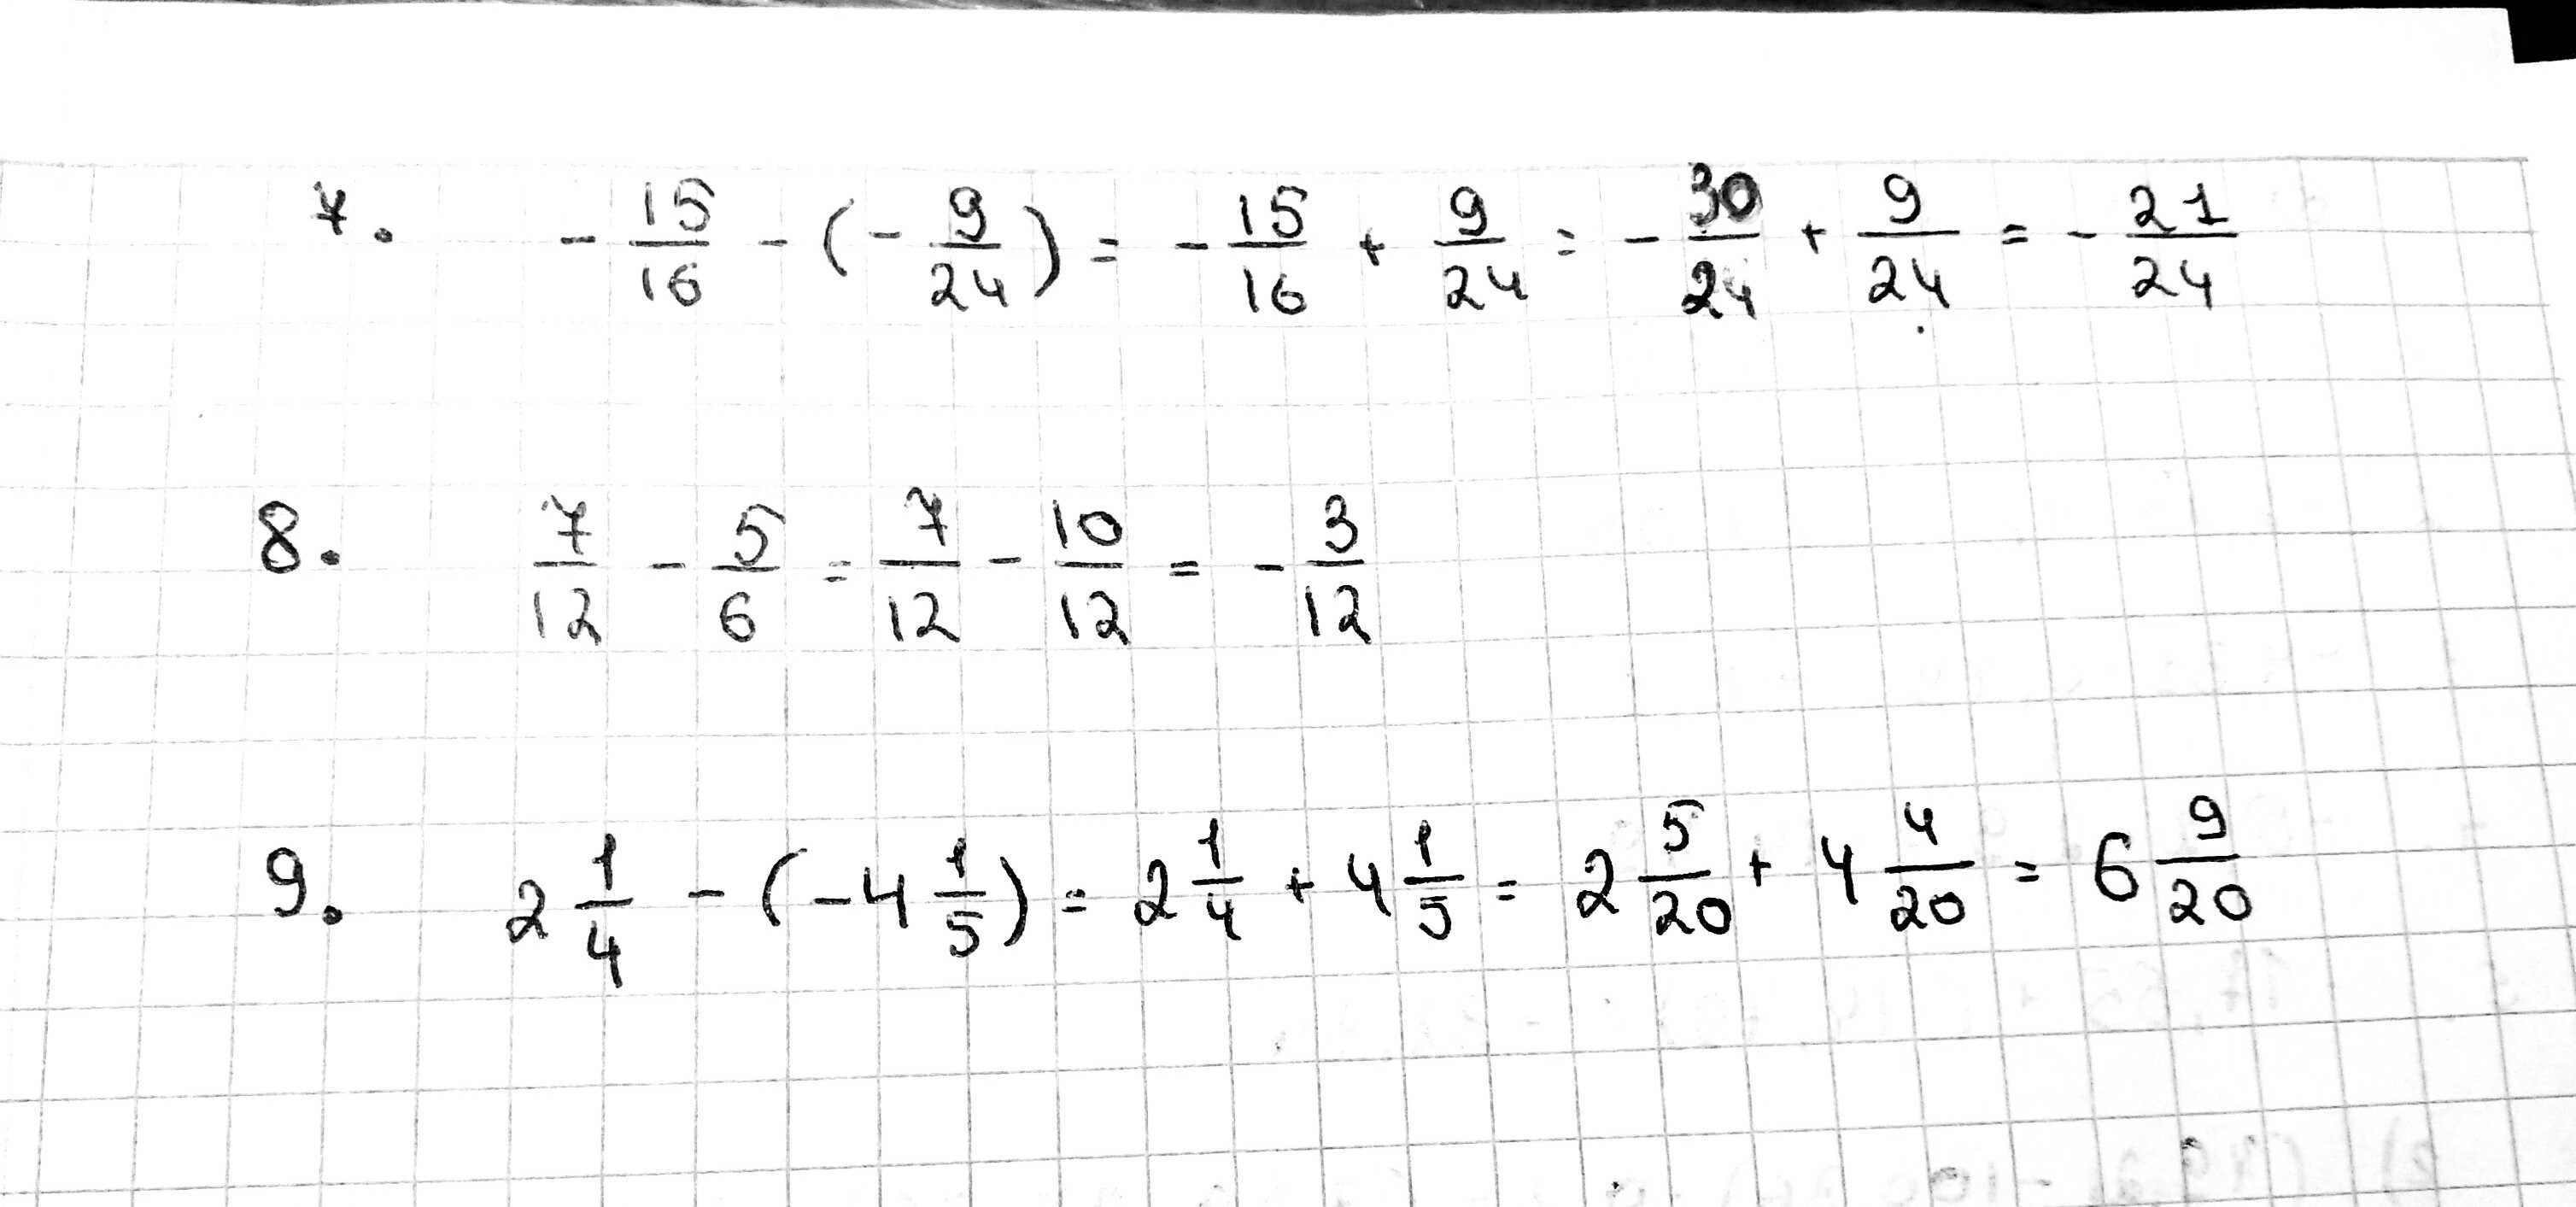 7. - 15/16 - (- 9/24) = - 15/16 + 9/24 = - 30/24 + 9/24 = - 21/24
8. 7/12 - 5/6 = 7/12 - 10/12 = - 3/12
9. 2 1/4 - (-4 1/5) = 2 1/4 + 4 1/5 = 2 5/20 + 4 4/20 = 6 9/20